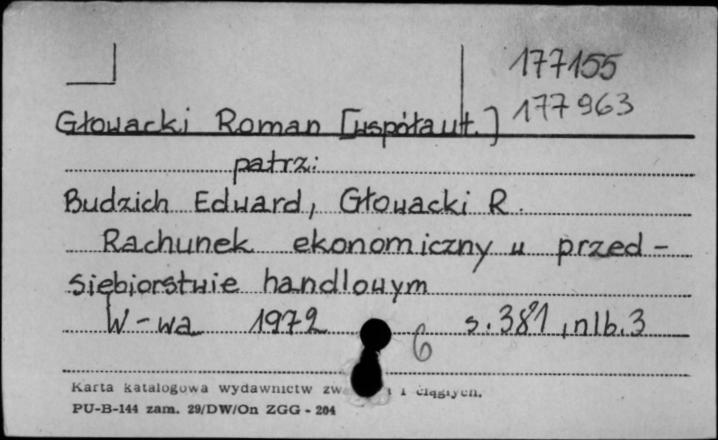 177155
177963
Głowacki Roman [współaut.]
patrz:
Budzich Edward, Głowacki R.
Rachunek ekonomiczny w przed-
siębiorstwie handlowym
W-wa 1972 s. 381, nlb. 3
6
Karta katalogowa wydawnictw i ciągłych.
PU-B-144 zam. 29/DW/On ZGG - 204